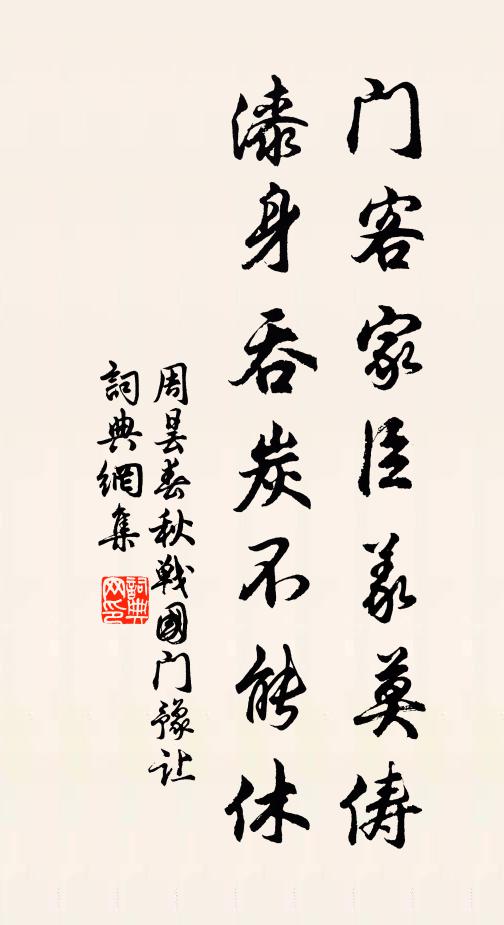 门客家臣義莫俦
漆身吞炭不能休
周昙春秋戰國门豫让
詞典網集
詞典网印